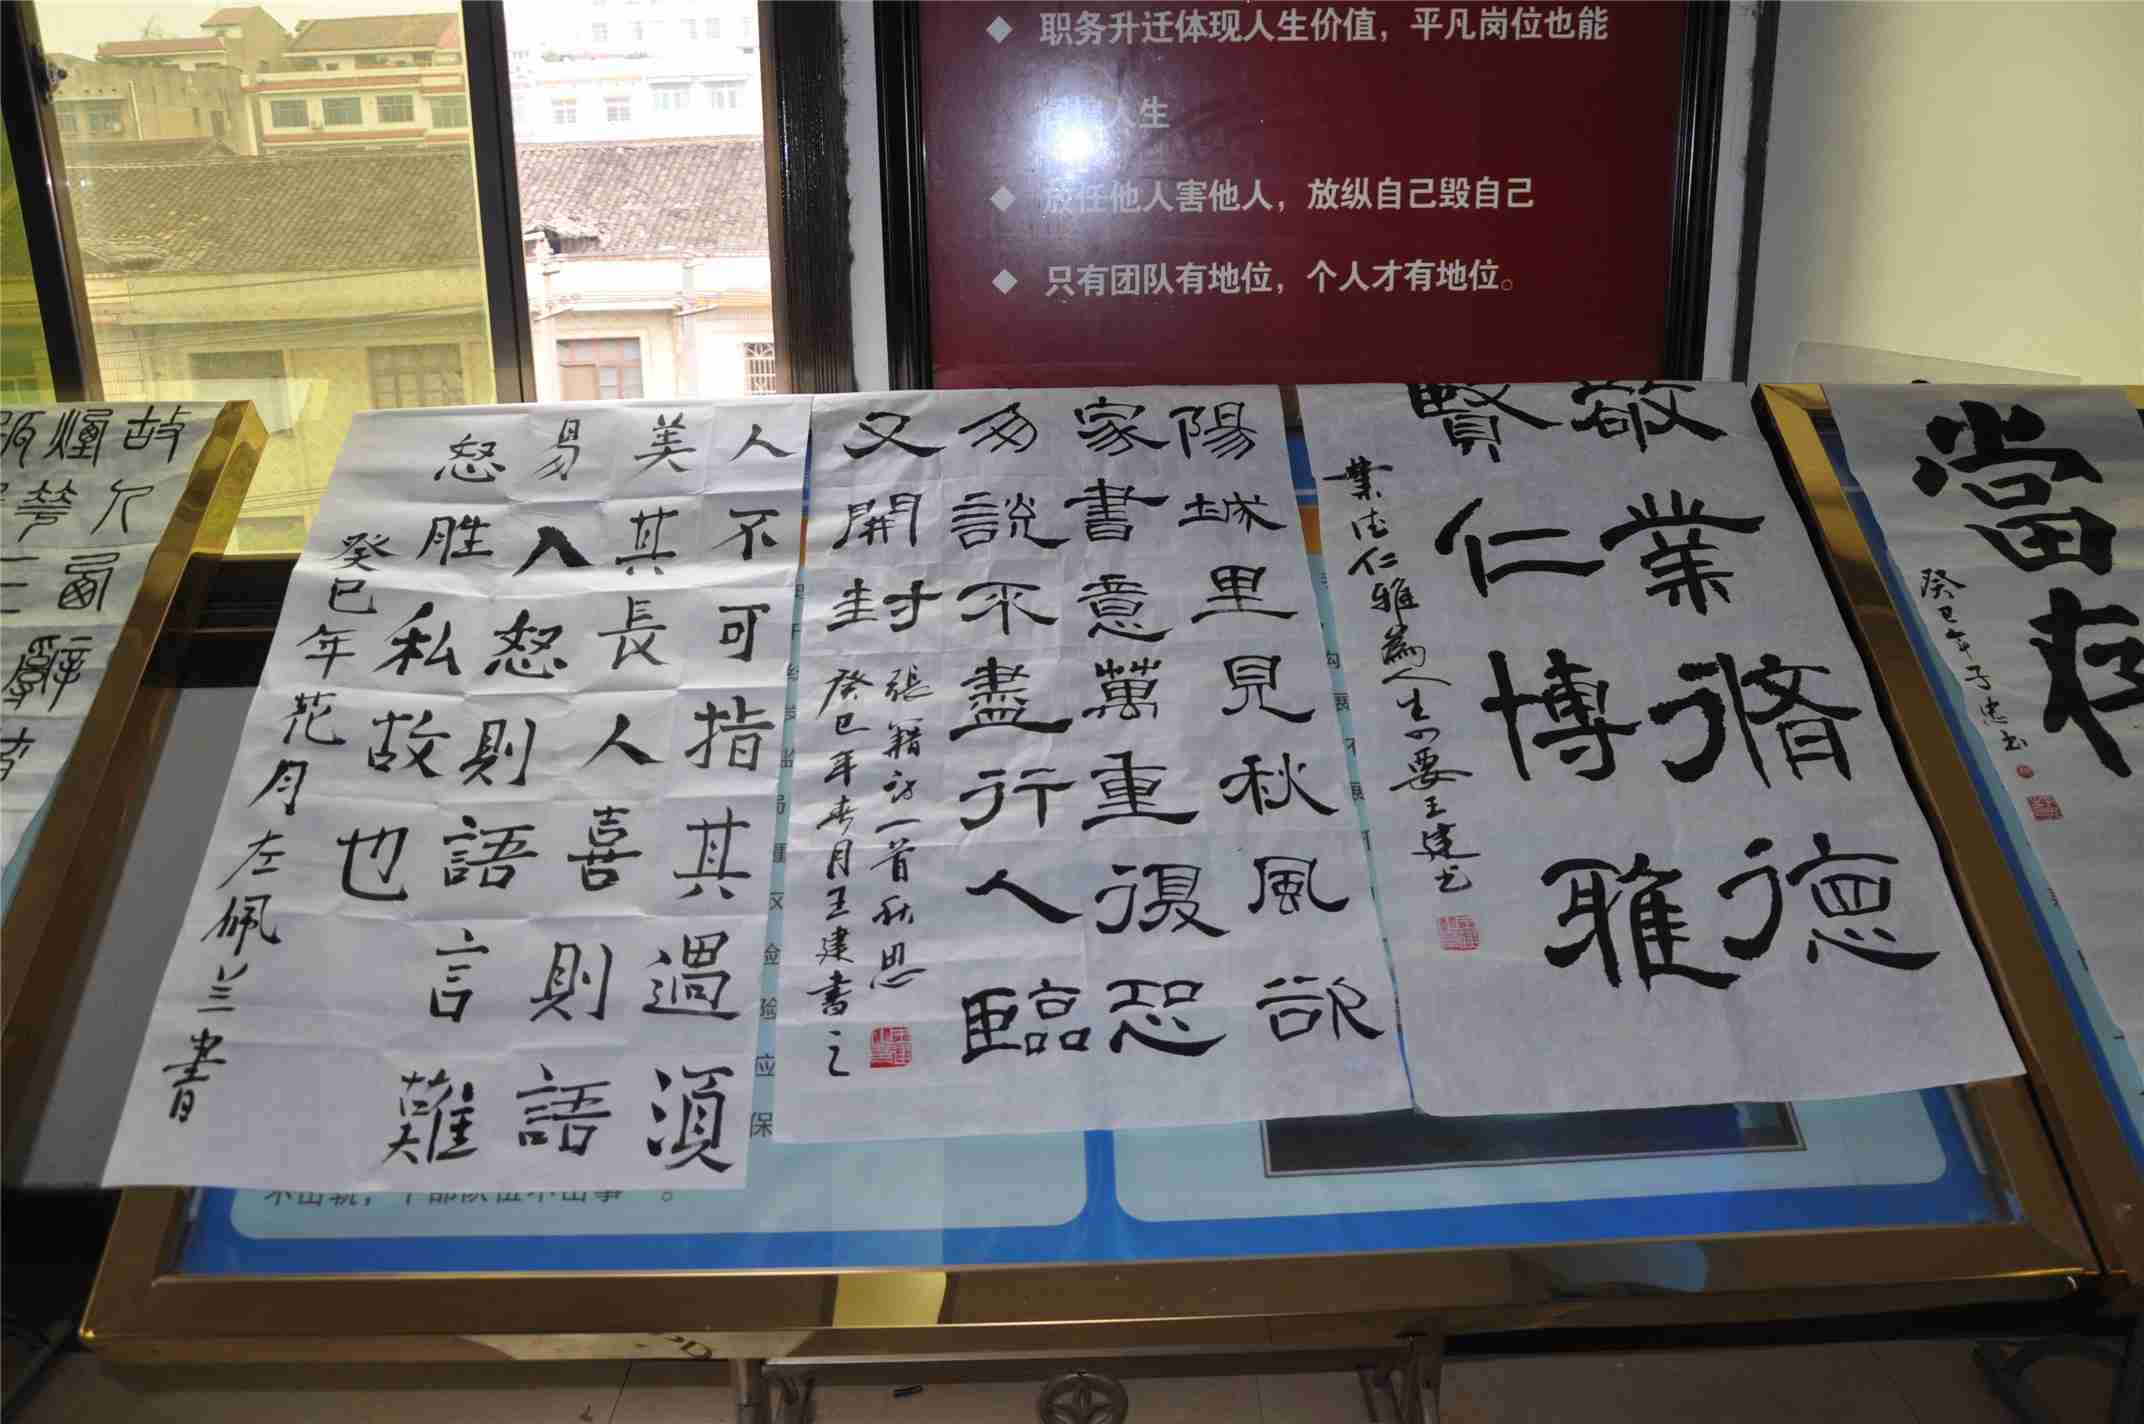 职务升迁体现人生价值，平凡岗位也能
人生
放任他人害他人，放纵自己毁自己
只有团队有地位，个人才有地位。
當存
癸巳年子忠书
敬業脩德
賢仁博雅
業德仁雅為人生必要王建书
陽城里見秋風欲
家書意萬重復恐
多說不盡行人臨
又開封
張籍詩一首秋思
癸巳年春月王建書之
人不可指其過須
美其長人喜則語
易入怒則語言難
怒胜私故也
癸巳年花月左佩兰書
故人西辭
煙花三
应
保